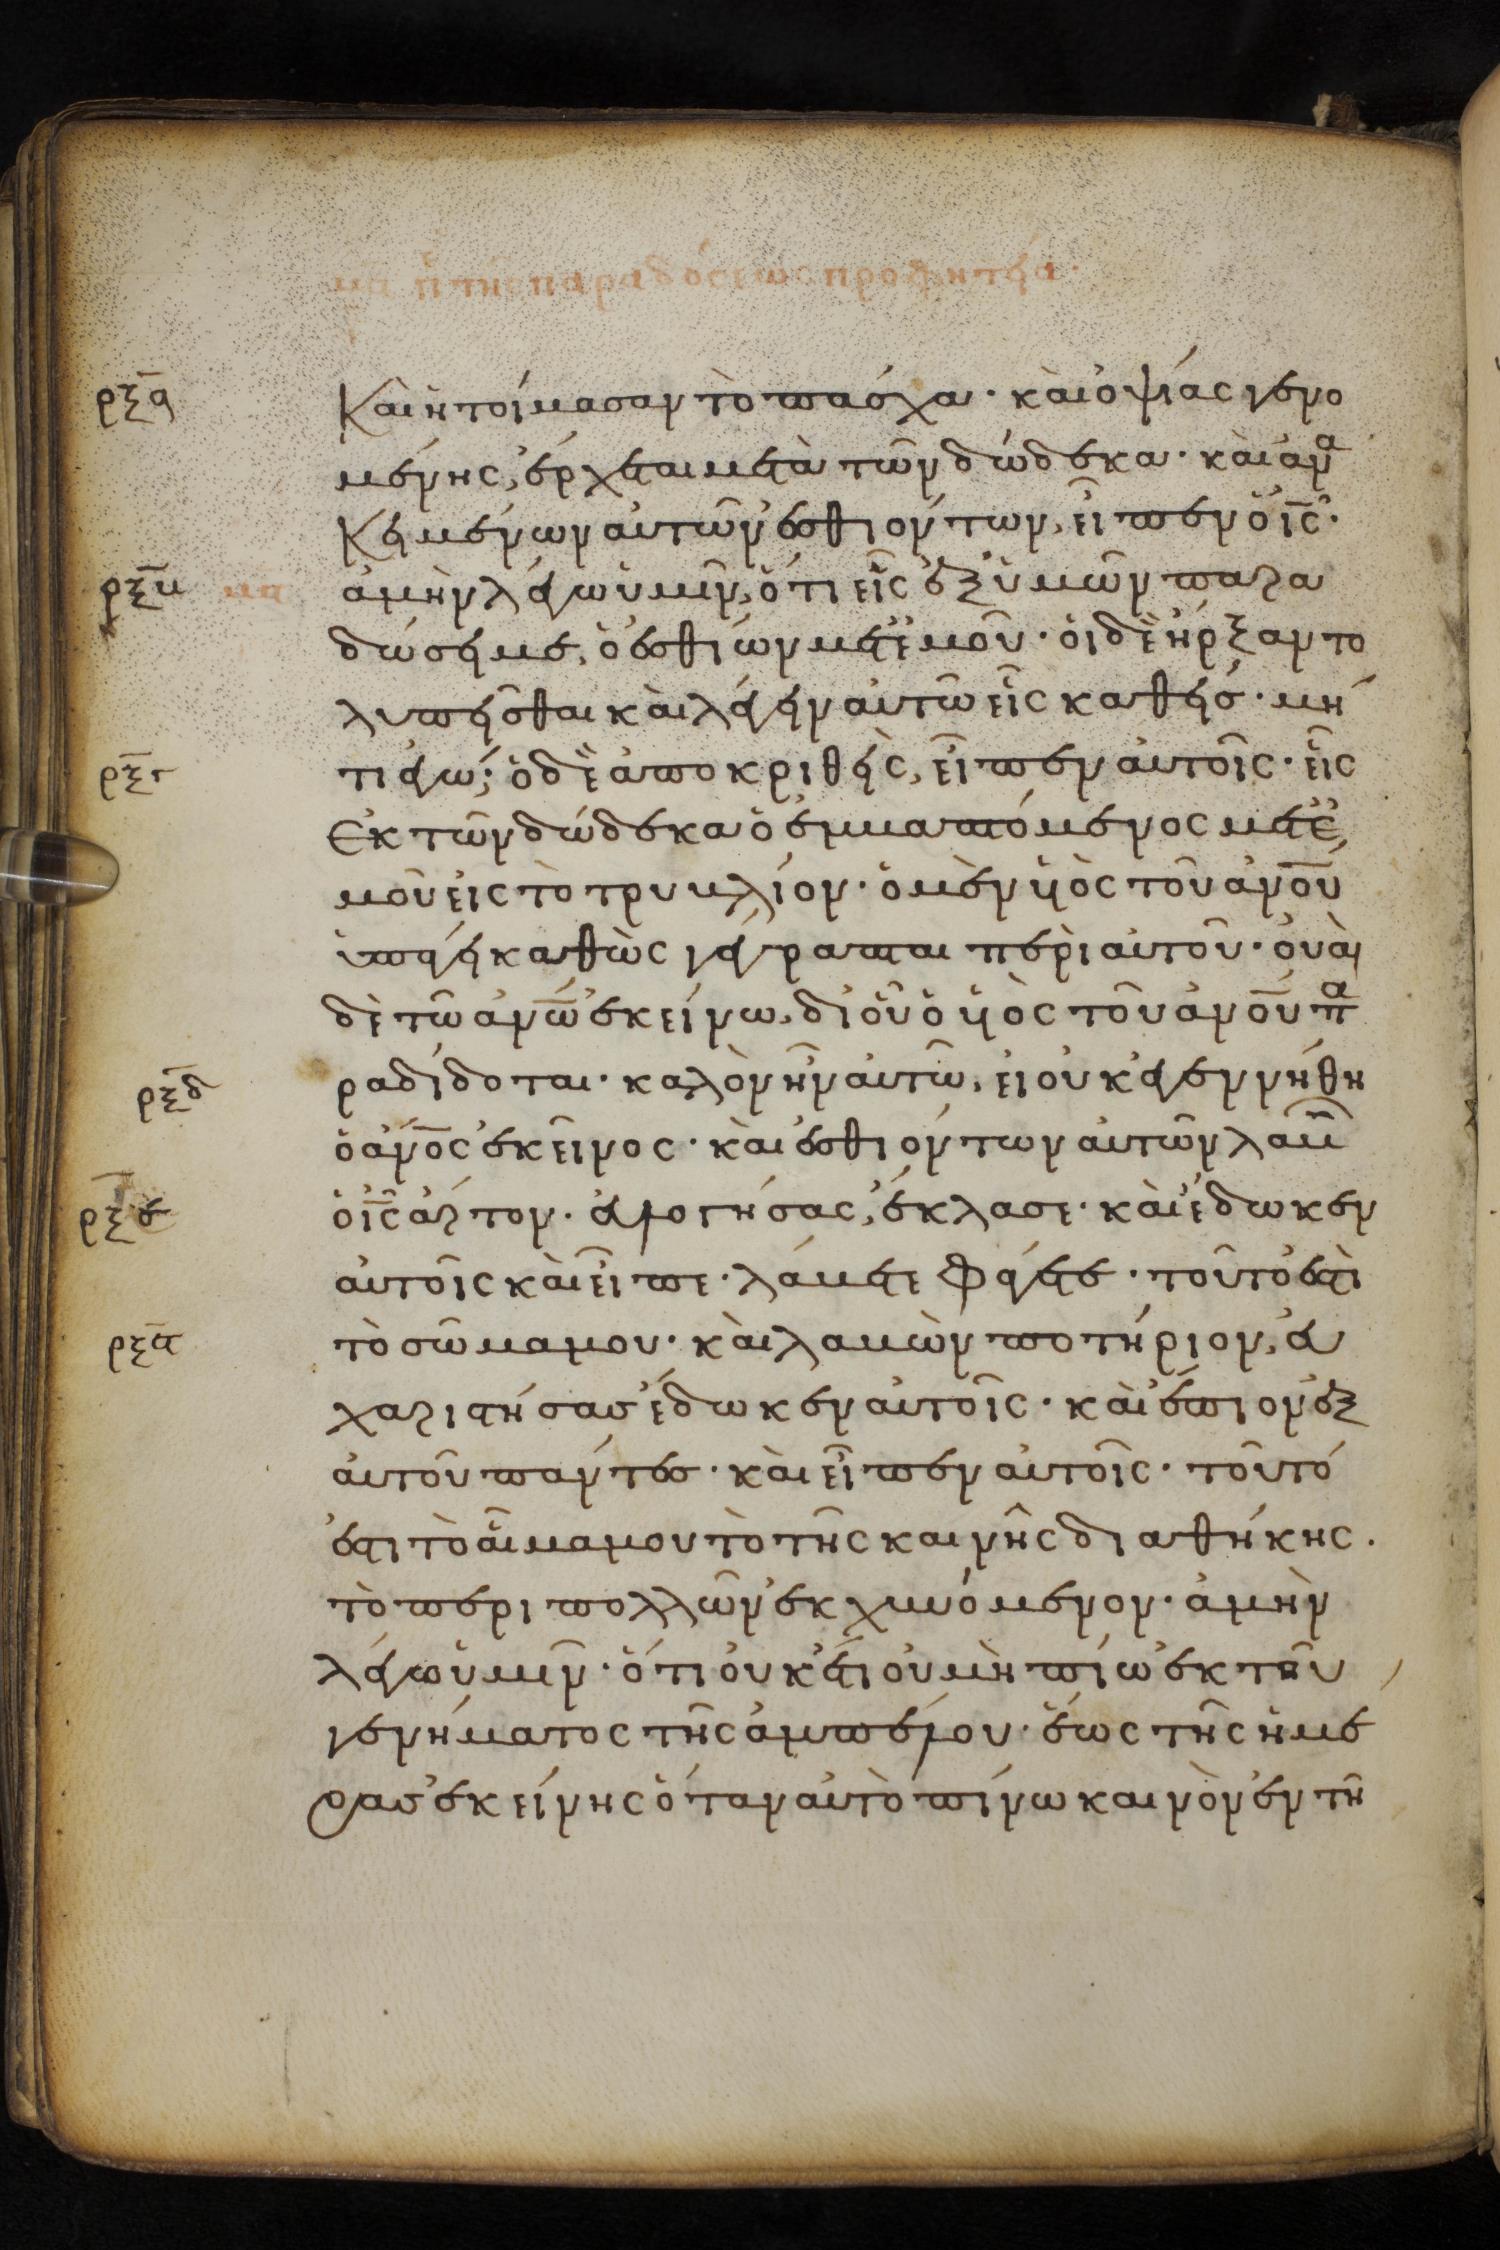 μη π τῆς παραδόσεως προφητεία·
ρξα Καὶ ἡτοίμασαν τὸ πάσχα· καὶ ὀψίας γενο
μένης, ἔρχεται μετὰ τῶν δώδεκα· καὶ ἀνα
κειμένων αὐτῶν ἐσθιόντων, εἶπεν ὁ ις̅·
ρξβ μπ ἀμὴν λέγω ὑμῖν, ὅτι εἷς ἐξ ὑμῶν παρα
δώσει με, ὁ ἐσθίων μετ' ἐμοῦ· οἱ δὲ ἤρξαντο
λυπεῖσθαι καὶ λέγειν αὐτῶ εἷς καθείς· μή
ρξγ τι ἐγώ; ὁ δὲ ἀποκριθεὶς, εἶπεν αὐτοῖς· εἷς
ἐκ τῶν δώδεκα ὁ ἐμβαπτόμενος μετ' ἐ
μοῦ εἰς τὸ τρυβλίον· ὁ μὲν υἱὸς τοῦ ανο̅υ
ὑπάγει καθὼς γέγραπται περὶ αὐτοῦ· οὐαὶ
δὲ τῶ ανω̅ ἐκείνω, δι' οὗ ὁ υἱὸς τοῦ ανο̅υ πα
ρξδ ραδίδοται· καλὸν ἦν αὐτῶ, εἰ οὐκ ἐγεννήθη
ὁ ανο̅ς ἐκεῖνος· καὶ ἐσθιόντων αὐτῶν λαβὼν
ρξε ὁ ις̅ ἄρτον· εὐλογήσας, ἔκλασε· καὶ ἔδωκεν
αὐτοῖς καὶ εἶπε· λάβετε φάγετε· τοῦτό ἐστὶ
ρξϛ τὸ σῶμα μου· καὶ λαβὼν ποτήριον, εὐ
χαριστήσας ἔδωκεν αὐτοῖς· καὶ ἔπιον ἐξ
αὐτοῦ πάντες· καὶ εἶπεν αὐτοῖς· τοῦτό
ἐστι τὸ αἷμα μου τὸ τῆς καινῆς διαθήκης·
τὸ περι πολλῶν ἐκχυνόμενον· ἀμὴν
λέγω ὑμῖν· ὅτι οὐκ έτι οὐ μὴ πίω ἐκ τοῦ
γενήματος τῆς ἀμπέλου· ἕως τῆς ἡμέ
ρας ἐκείνης ὅταν αὐτὸ πίνω καινὸν ἐν τῆ